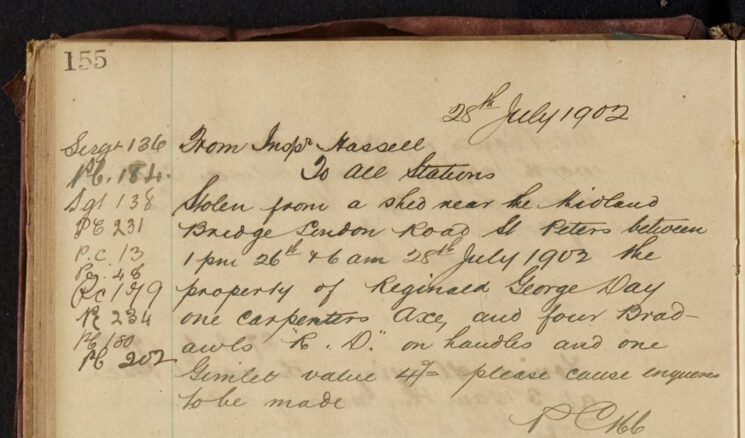 155
28th July 1902
From Inspr Hassell
To all Stations
Stolen from a shed near the Midland
Bridge London Road St Peters between
1 pm 26th & 6 am 28th July 1902 the
property of Reginald George Day
one carpenters Axe, and four Brad-
awls "R. D." on handles and one
Gimlet value please cause enquires
to be made
Sergt 136
Pc. 184.
Sgt 138
PC 231
P.C. 13
Pc. 48
Pc 179
Pc 234
Pc 180
Pc 202